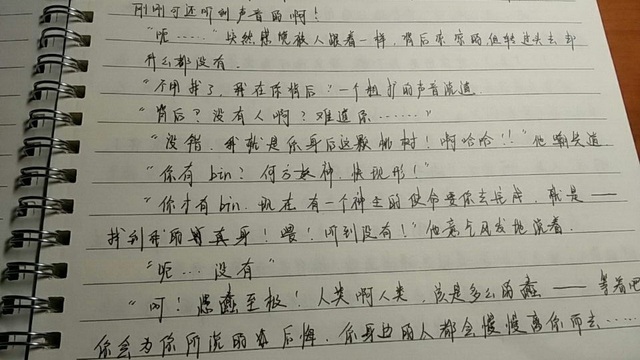 刚刚可还听到声音的啊！
“呃……”突然感觉被人跟着一样，背后凉凉的但转过头去却
什么都没有。
“不用找了，我在你背后！”一个粗犷的声音说道
“背后？没有人啊？难道你……”
“没错，我就是你身后这颗桃树！啊哈哈！！”他嘲笑道
“你有bin？何方妖神，快现形！”
“你才有bin，现在有一个神圣的使命要你去完成，就是——
找到我的真身！喂！听到没有！”他意气风发地说着.
“呃…没有”
“呵！愚蠢至极！人类啊人类，总是多么的蠢——等着吧
你会为你所说的话后悔，你身边的人都会慢慢离你而去……